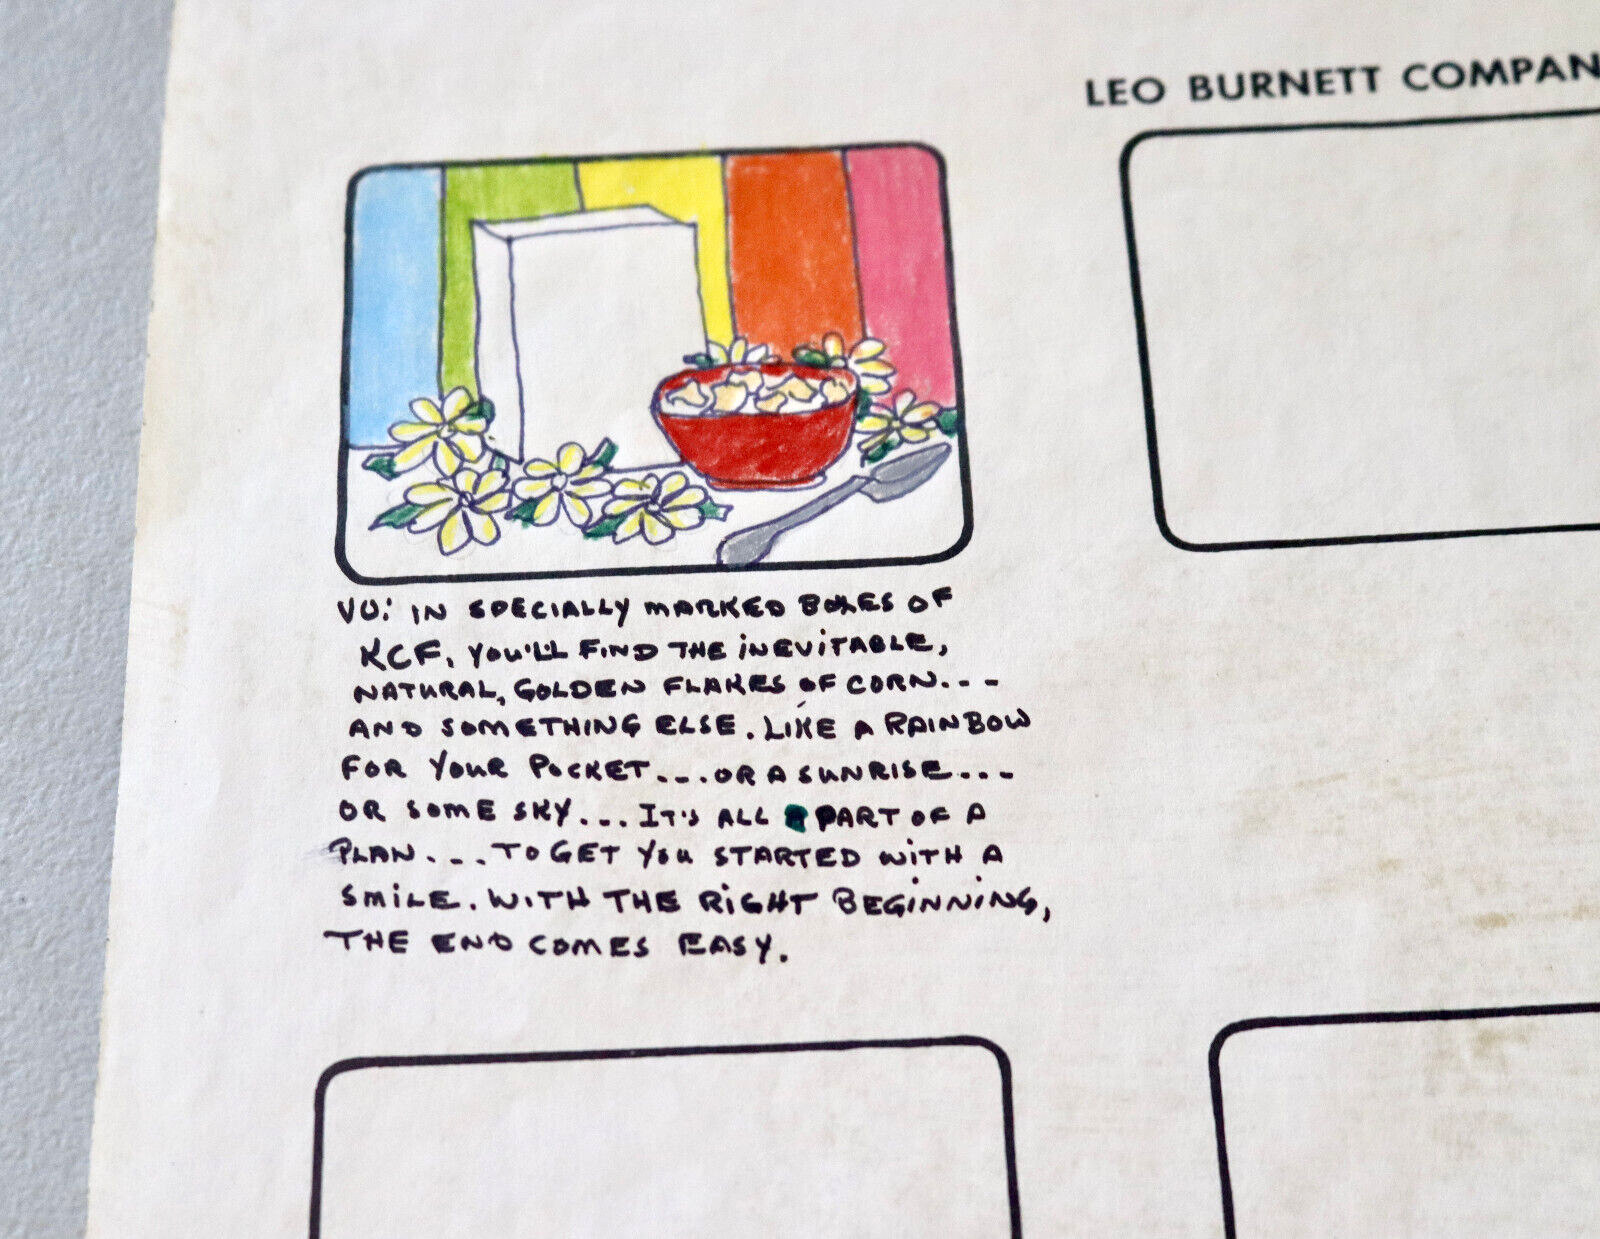 LEO BURNETT COMPAN
VO: IN SPECIALLY MARKED BOXES OF
KCF, YOU'LL FIND THE INEVITABLE,
NATURAL, GOLDEN FLAKES OF CORN...
AND SOMETHING ELSE. LIKE A RAINBOW
FOR YOUR POCKET... OR A SUNRISE...
OR SOME SKY... IT'S ALL PART OF A
PLAN... TO GET YOU STARTED WITH A
SMILE. WITH THE RIGHT BEGINNING,
THE END COMES EASY.